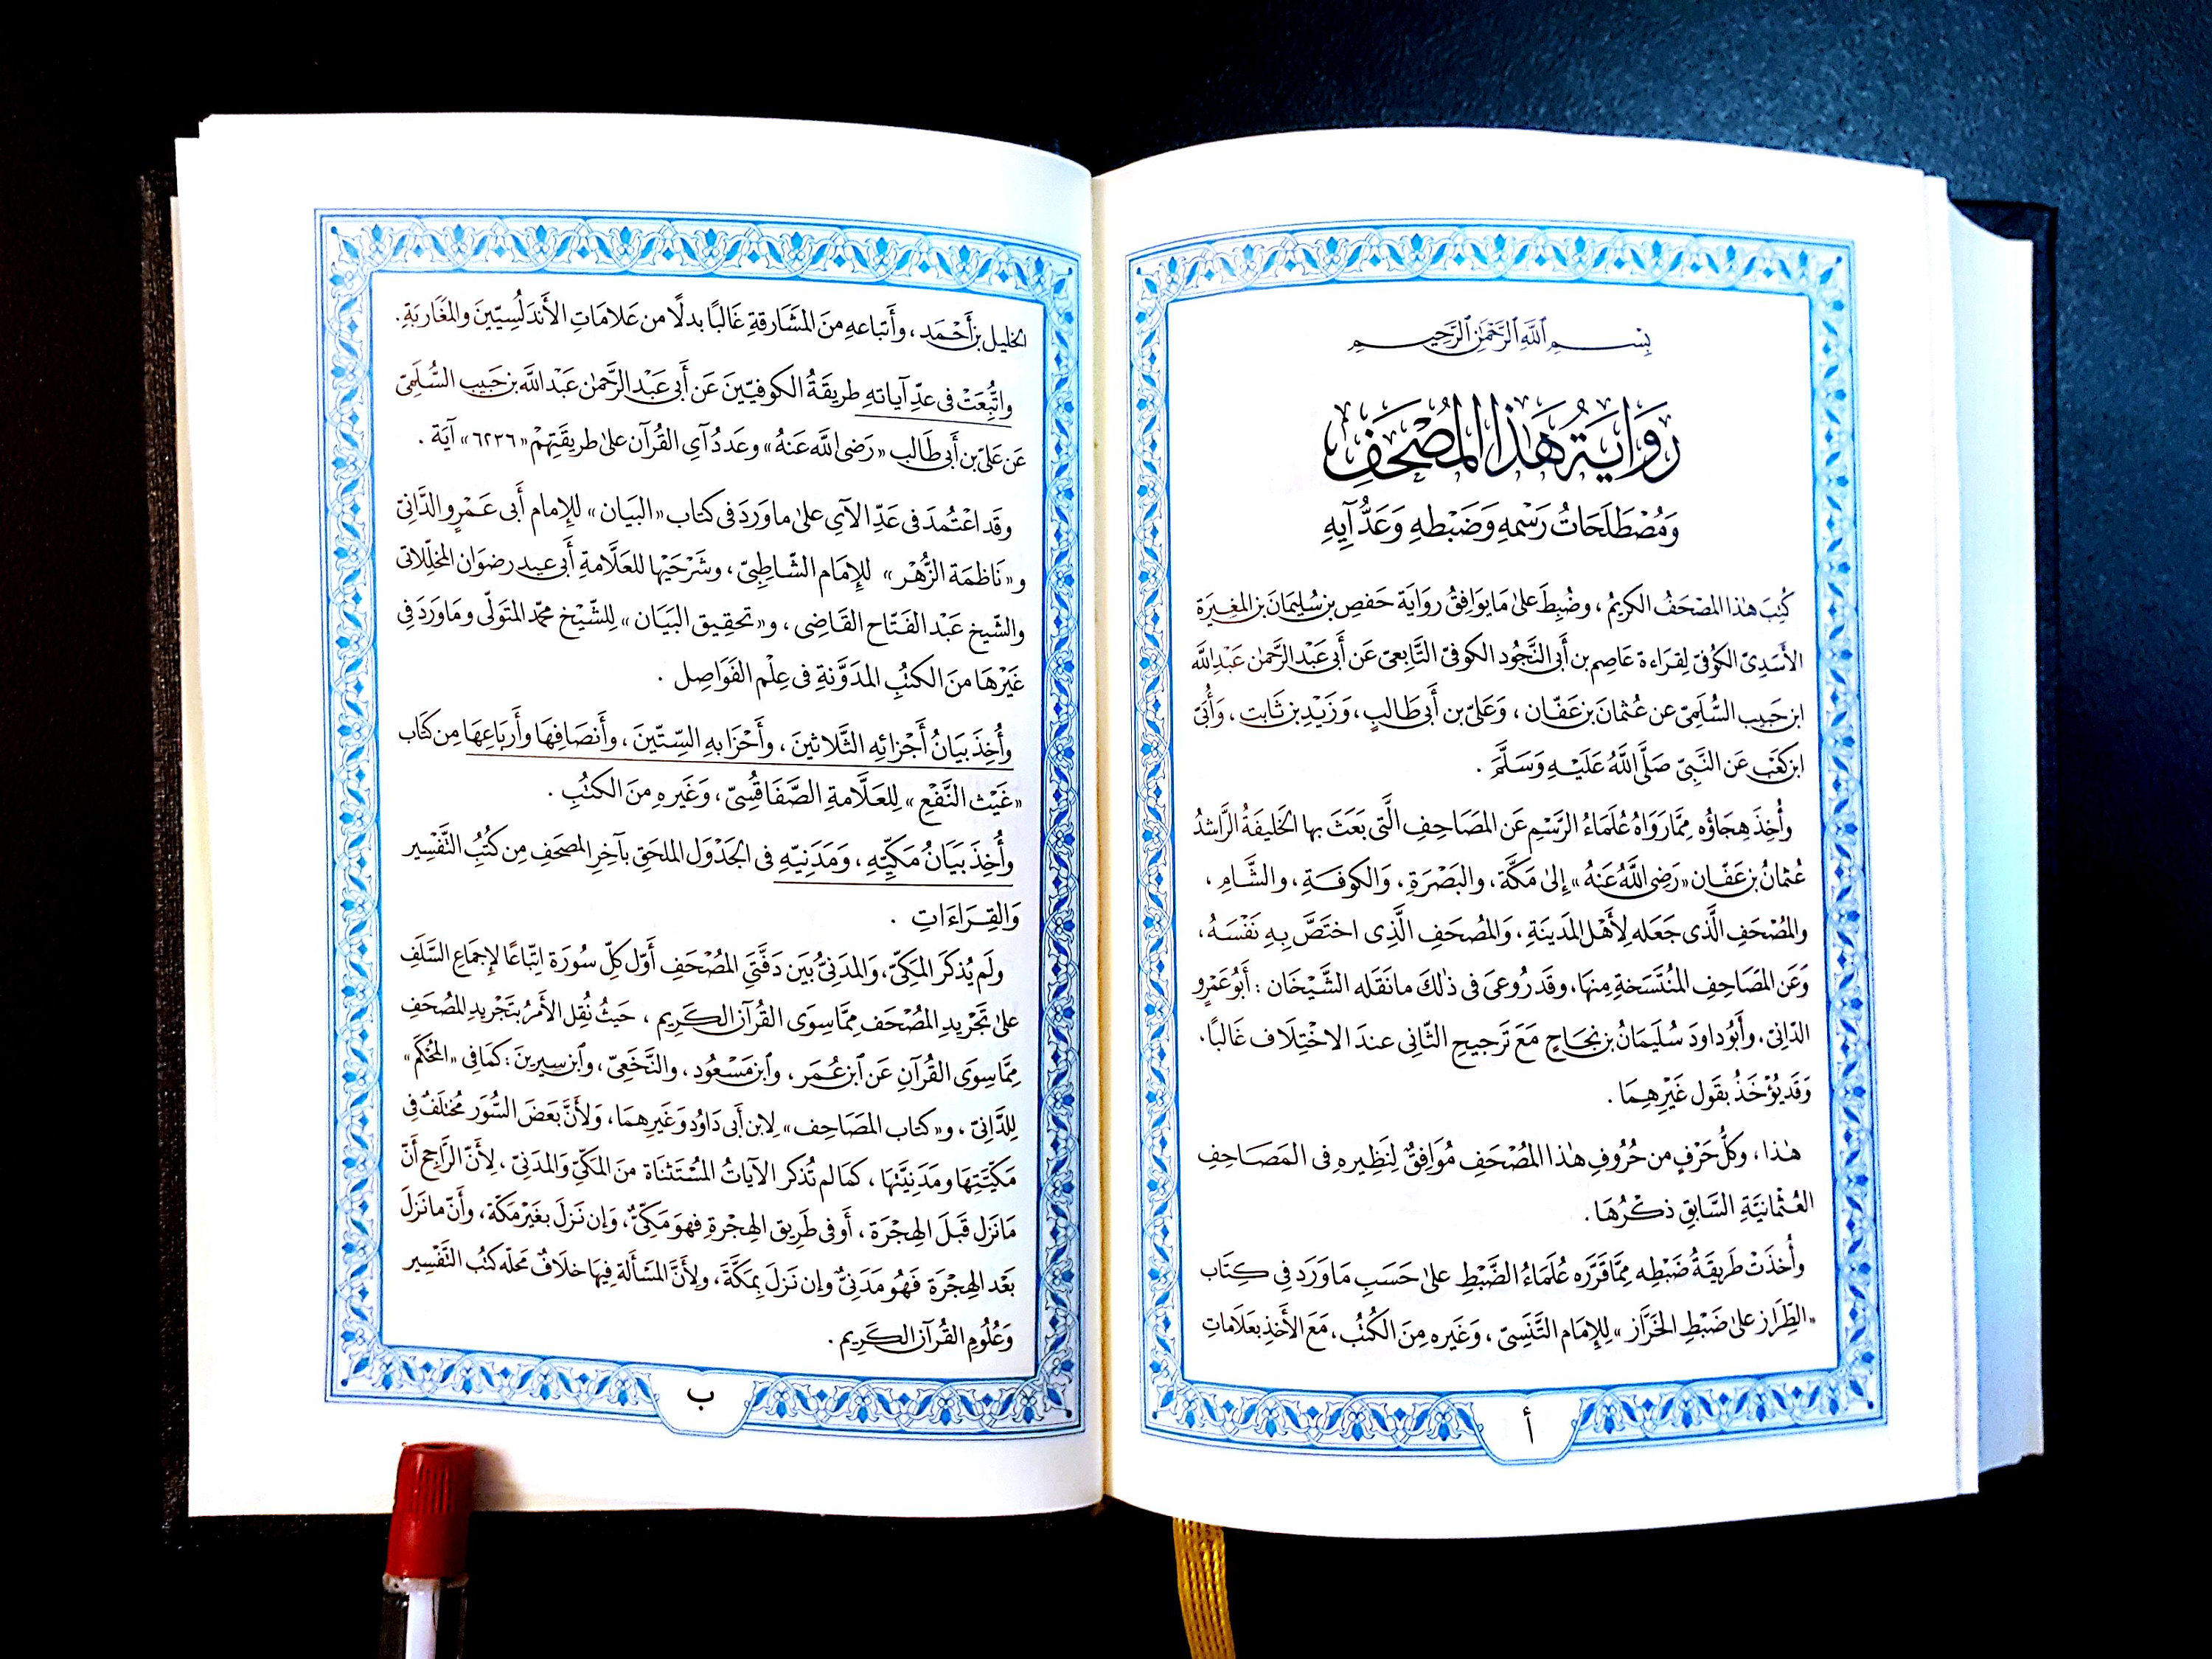 بِسْمِ ٱللَّهِ ٱلرَّحْمَٰنِ ٱلرَّحِيمِ
رِوَايَةُ هَذَا المُصْحَفِ
وَمُصْطَلَحَاتُ رَسْمِهِ وَضَبْطِهِ وَعَدُّ آيِهِ
كُتِبَ هٰذا المصْحَفُ الكريمُ، وضُبِطَ علىٰ مَا يوَافِقُ روَايَةَ حَفصِ بنِ سُليمَانَ بنِ المغِيرَةِ
الأسَدِىّ الكُوفىّ لِقراءةِ عَاصِم بن أَبى النَّجُود الكوفىّ التَّابِعىّ عَن أَبى عَبْدِ الرَّحمٰن عَبْدِ اللَّه
ابن حَبِيب السُّلَمِىّ عن عُثمانَ بنِ عَفّان، وَعَلىّ بن أَبى طَالبٍ، وَزَيْدِ بنِ ثَابت، وَأُبَىّ
ابن كَعْبٍ عَن النَّبِىّ صَلَّى اللَّهُ عَلَيْهِ وَسَلَّمَ.
وأُخِذَ هِجَاؤُه مِمَّا رَوَاهُ عُلَمَاءُ الرَّسْمِ عَن المصَاحِفِ الَّتى بَعَثَ بها الخَليفَةُ الرَّاشدُ
عُثمانُ بنُ عَفّان «رَضِى اللَّهُ عَنهُ» إلىٰ مَكَّةَ، والبَصْرَةِ، وَالكوفَةِ، والشَّامِ،
والمُصْحَفِ الَّذى جَعَله لِأَهْل المَدينَةِ، وَالمصْحَفِ الَّذِى اختَصَّ بِهِ نَفْسَهُ،
وَعَن المصَاحِفِ المُنْتَسَخةِ مِنهَا، وقَد رُوعىَ فى ذٰلكَ ما نَقَله الشَّيْخَان: أَبُو عَمْرٍو
الدّانىّ، وأَبُو داودَ سُلَيمَانُ بن نجَاحٍ مَعَ تَرجيحِ الثّانى عندَ الاخْتِلَاف غَالبًا.
وَقَد يُؤْخَذُ بقَول غَيْرِهِمَا.
هٰذا، وكلُّ حَرْفٍ من حُرُوفِ هٰذا المُصْحَف مُوَافِقٌ لِنَظِيرِهِ فى المَصَاحِفِ
العُثمانيَّةِ السَّابقِ ذكْرُهَا.
وأُخذَتْ طَريقَةُ ضَبْطِه مِمَّا قَرَّرَه عُلمَاءُ الضَّبْطِ علىٰ حَسَبِ مَا وَرَدَ فِى كِتَاب
«الطِّرَاز علىٰ ضَبْطِ الخَرَّاز» لِلإمَام التَّنَسِىّ، وَغَيره مِنَ الكتُبِ، مَعَ الأَخذِ بعَلَامَاتِ
أ
الخليل بن أَحْمَد، وأَتباعهِ منَ المشَارقةِ غَالبًا بدلًا من عَلامَاتِ الأَندَلُسِيّينَ والمغَاربَةِ.
واتُّبِعَتْ فى عدِّ آياتهِ طريقَةُ الكوفيّينَ عَن أَبى عَبْد الرَّحمٰن عَبْد اللَّه بن حَبِيب السُّلَمِىّ
عَن عَلىّ بن أَبى طَالب «رَضى اللَّه عَنهُ» وعَددُ آىِ القُرآن علىٰ طريقَتِهمْ «٦٢٣٦» آيَة.
وقَد اعْتُمدَ فى عَدِّ الآىِ علىٰ ما وَرَدَ فى كتاب «البَيَان» للإمام أَبى عَمْرٍو الدَّانىّ
و«نَاظمَة الزُّهْر» للإمَام الشَّاطِبىّ، وشَرْحَيْها للعَلَّامةِ أَبى عيد رضوَان المخلّلاتى
والشّيخ عَبْد الفَتّاح القَاضِى، و«تحقِيق البَيَان» لِلشَّيْخ محمّد المتَولّى ومَا وَرَدَ فى
غَيْرهَا منَ الكتُبِ المدَوَّنةِ فى عِلْم الفَوَاصِل.
وأُخِذَ بيَانُ أَجْزائه الثَّلاثينَ، وأَحْزَابهِ السِّتّينَ، وأَنصَافِهَا وأَربَاعِهَا مِن كتَاب
«غَيْث النَّفْعِ» لِلعَلَّامةِ الصَّفَاقُسِىّ، وَغَيره منَ الكتُبِ.
وأُخِذَ بَيَانُ مَكِّيِّهِ، وَمَدَنِيّهِ فى الجَدْوَل الملحَقِ بآخرِ المصحَف مِن كتُبِ التَّفْسِير
وَالقِرَاءَاتِ.
ولَم يُذكَرَ المكِّىّ، وَالمدَنىُّ بيَن دَفَّتَىِ المُصْحَفِ أَوّل كلّ سُورَة اتّبَاعًا لإجمَاعِ السَّلَفِ
علىٰ تَجْرِيدِ المُصْحَف مِمَّا سِوَى القُرآن الكَرِيم، حَيثُ نُقِل الأَمرُ بتَجْريدِ المُصْحَفِ
مِمَّا سِوَى القُرآنِ عَن ٱبن عُمَر، وٱبن مَسْعُود، والنَّخَعِىّ، وٱبن سِيرينَ: كمَا فِى «المُحْكَم»
لِلدَّانِىّ، و«كتاب المَصَاحِف» لِابن أَبى دَاوُد وَغَيرهمَا، وَلأَنَّ بَعضَ السُّوَر مُختَلَفٌ فِى
مَكيَّتِهَا ومَدَنيَّتهَا، كمَا لم تُذكَر الآيَاتُ المُسْتَثنَاة منَ المَكىّ وَالمدَنىّ، لِأَنّ الرَّاجِحَ أَنّ
مَا نَزل قَبلَ الهِجْرَة، أَو فى طَرِيق الهِجْرةِ فهوَ مَكِّىٌّ، وَإن نَزلَ بغَيْرِ مَكّةَ، وأَنّ ما نَزلَ
بَعْد الهِجْرَة فَهُو مَدَنىٌّ وإن نَزلَ بمَكَّةَ، ولأَنَّ المَسْأَلة فِيهَا خلَافٌ محَلّه كتُبُ التَّفْسِير
وَعُلُومِ القُرآن الكَرِيم.
ب